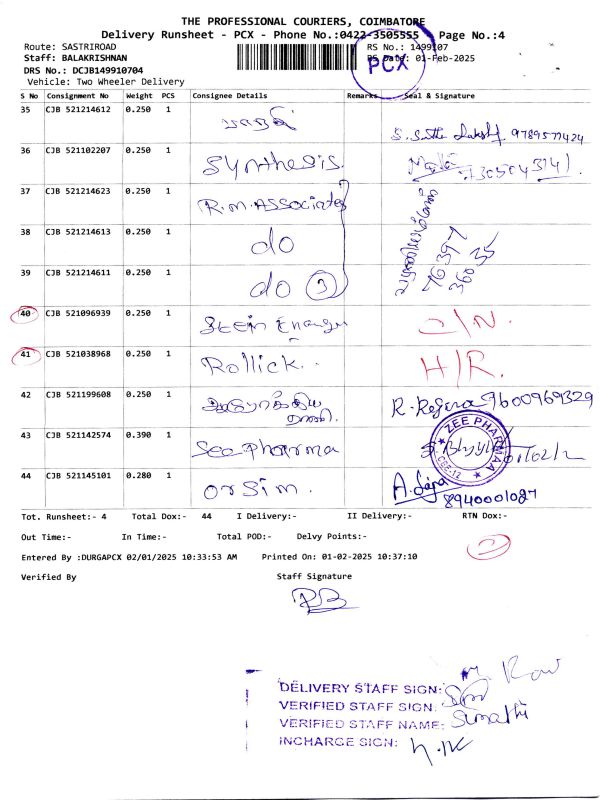 THE PROFESSIONAL COURIERS, COIMBATORE
Delivery Runsheet - PCX - Phone No.:0422-3505555 Page No.:4
Route: SASTRIROAD
RS No.: 1499107
Staff: BALAKRISHNAN
RS Date: 01-Feb-2025
PCX
DRS No.: DCJB149910704
Vehicle: Two Wheeler Delivery
S No Consignment No Weight PCS Consignee Details Remarks Seal & Signature
35 CJB 521214612 0.250 1 9789577424
36 CJB 521102207 0.250 1 Synthesis. 7305043141
37 CJB 521214623 0.250 1 R.M. Associates
38 CJB 521214613 0.250 1 do
76397
36035
39 CJB 521214611 0.250 1 do 3
40 CJB 521096939 0.250 1
41 CJB 521038968 0.250 1 Rollick.. H/R.
42 CJB 521199608 0.250 1 ஆரோக்கிய R. Regina 9600969329
43 CJB 521142574 0.390 1 Sea Pharma
ZEE PHARMAA
CBE-12
44 CJB 521145101 0.280 1 Orsim. 8940001027
Tot. Runsheet:- 4 Total Dox:- 44 I Delivery:- II Delivery:- RTN Dox:-
Out Time:- In Time:- Total POD:- Delvy Points:- 2
Entered By :DURGAPCX 02/01/2025 10:33:53 AM Printed On: 01-02-2025 10:37:10
Verified By Staff Signature
DELIVERY STAFF SIGN:
VERIFIED STAFF SIGN:
VERIFIED STAFF NAME: Sumathi
INCHARGE SIGN: